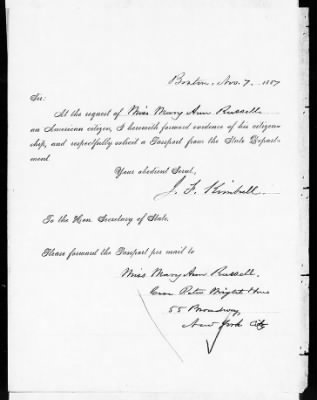 Boston, Nov. 7, 1887
Sir:
At the request of Miss Mary Ann Russell
an American citizen, I herewith forward evidence of his citizen-
ship, and respectfully solicit a Passport from the State Depart-
ment.
Your obedient Servt,
J. F. Kimball
To the Hon. Secretary of State.
Please forward the Passport per mail to
Miss Mary Ann Russell.
Care Peter Wright & Sons
55 Broadway,
New York City